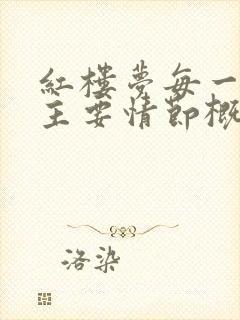 紅樓夢每一
主要情節概
洛染